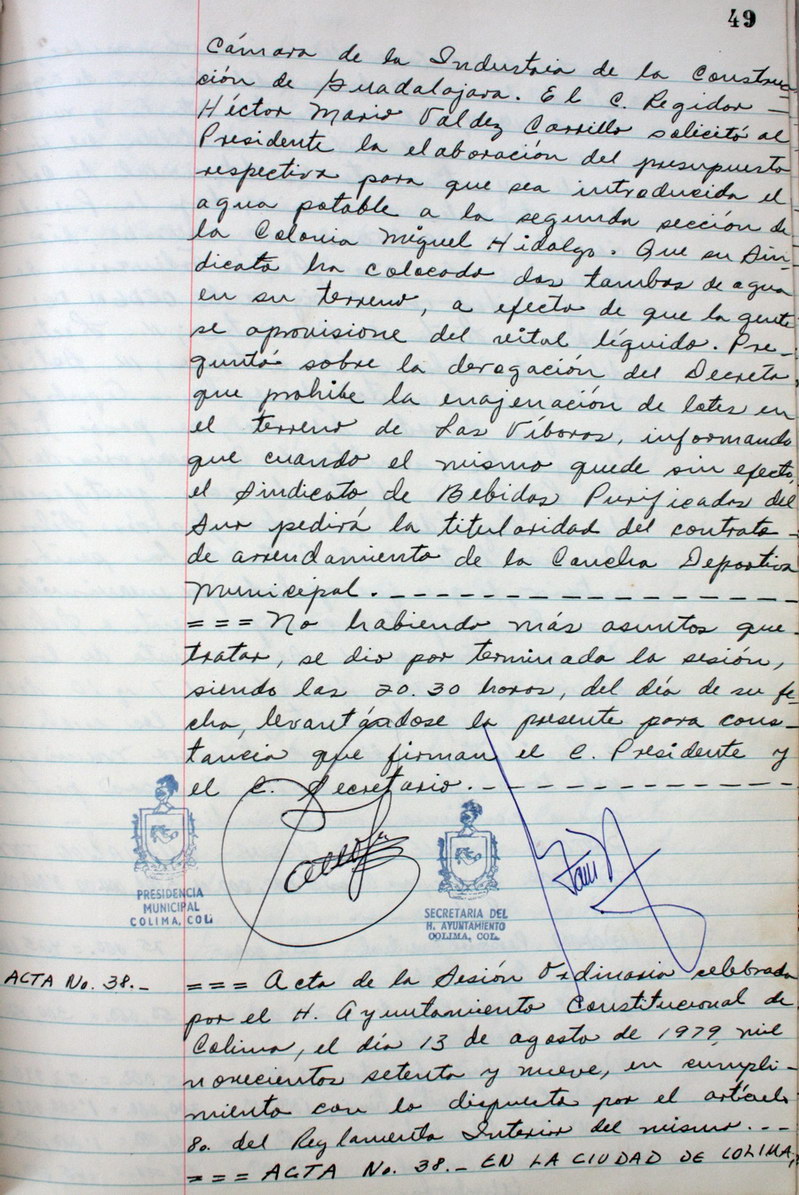 49
Cámara de la Industria de la Construc
ción de Guadalajara. El C. Regidor -
Héctor Mario Valdez Carrillo solicitó al
Presidente la elaboración del presupuesto
respectivo para que sea introducida el
agua potable a la segunda sección de
la Colonia Miguel Hidalgo. Que su Sin-
dicato ha colocado dos tambos de agua
en su terreno, a efecto de que la gente
se aprovisione del vital líquido. Pre-
guntó sobre la derogación del Decreto
que prohibe la enajenación de lotes en
el terreno de Las Víboras, informando
que cuando el mismo quede sin efecto,
el Sindicato de Bebidas Purificadas del
Sur pedirá la titularidad del contrato -
de arrendamiento de la Cancha Deportiva
Municipal. - - - - - - - - - - - - - - - -
= = = No habiendo más asuntos que
tratar, se dio por terminada la sesión,
siendo las 20.30 horas, del día de su fe-
cha, levantándose la presente para cons-
tancia que firman el C. Presidente y
el C. Secretario. - - - - - - - - - - - - -
PRESIDENCIA
MUNICIPAL
COLIMA, COL.
SECRETARIA DEL
H. AYUNTAMIENTO
COLIMA, COL.
ACTA No. 38.-
= = = Acta de la Sesión Ordinaria celebrada
por el H. Ayuntamiento Constitucional de
Colima, el día 13 de agosto de 1979, mil
novecientos setenta y nueve, en cumpli-
miento con lo dispuesto por el artículo
8o. del Reglamento Interior del mismo. - - -
= = = ACTA No. 38.- EN LA CIUDAD DE COLIMA,